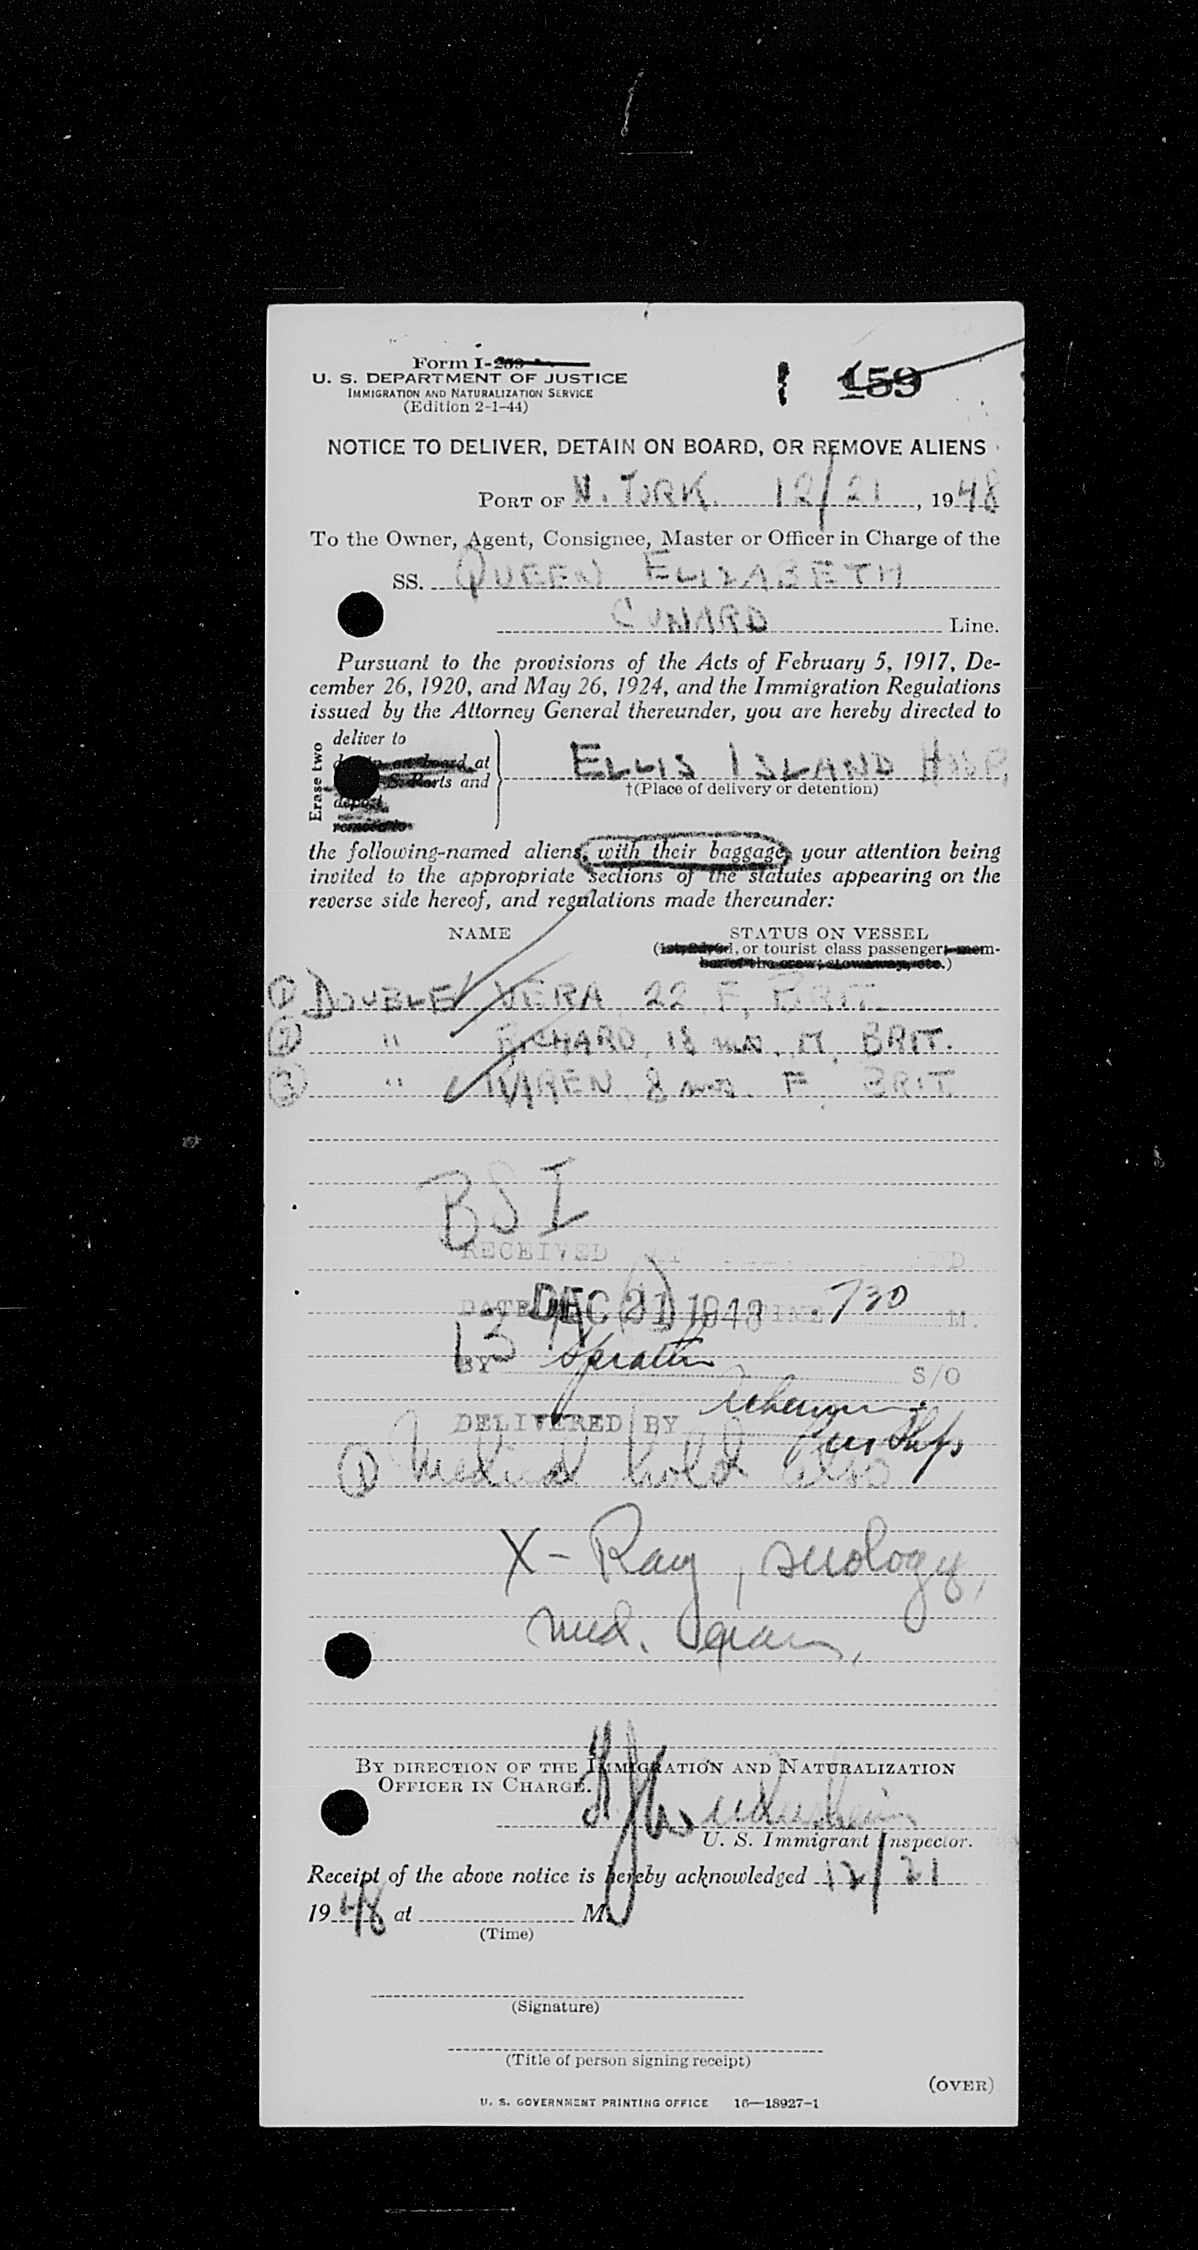 Form I-259
U. S. DEPARTMENT OF JUSTICE
IMMIGRATION AND NATURALIZATION SERVICE
(Edition 2-1-44)
159
NOTICE TO DELIVER, DETAIN ON BOARD, OR REMOVE ALIENS
PORT OF N. YORK. 12/21, 1948
To the Owner, Agent, Consignee, Master or Officer in Charge of the
SS. QUEEN ELIZABETH
CUNARD Line.
Pursuant to the provisions of the Acts of February 5, 1917, De-
cember 26, 1920, and May 26, 1924, and the Immigration Regulations
issued by the Attorney General thereunder, you are hereby directed to
Erase two
deliver to
on board at
Ports and
deport
remove to
ELLIS ISLAND HOSP.
†(Place of delivery or detention)
the following-named aliens, with their baggage, your attention being
invited to the appropriate sections of the statutes appearing on the
reverse side hereof, and regulations made thereunder:
NAME STATUS ON VESSEL
(1st, 2d, 3d, or tourist class passenger; mem-
ber of the crew; stowaway, etc.)
① DOUBLE VERA 22 F, BRIT.
② " RICHARD, 18 mos. M. BRIT.
③ " KAREN, 8 mos. F. BRIT.
BSI
RECEIVED
DATE DEC 21 1948 TIME 730 M.
BY S/O
DELIVERED BY
① Medical hold also
X-Ray, serology,
med. exam.
BY DIRECTION OF THE IMMIGRATION AND NATURALIZATION
OFFICER IN CHARGE.
U. S. Immigrant Inspector.
Receipt of the above notice is hereby acknowledged 12/21
1948 at M.
(Time)
(Signature)
(Title of person signing receipt)
(OVER)
U. S. GOVERNMENT PRINTING OFFICE 16—18927-1